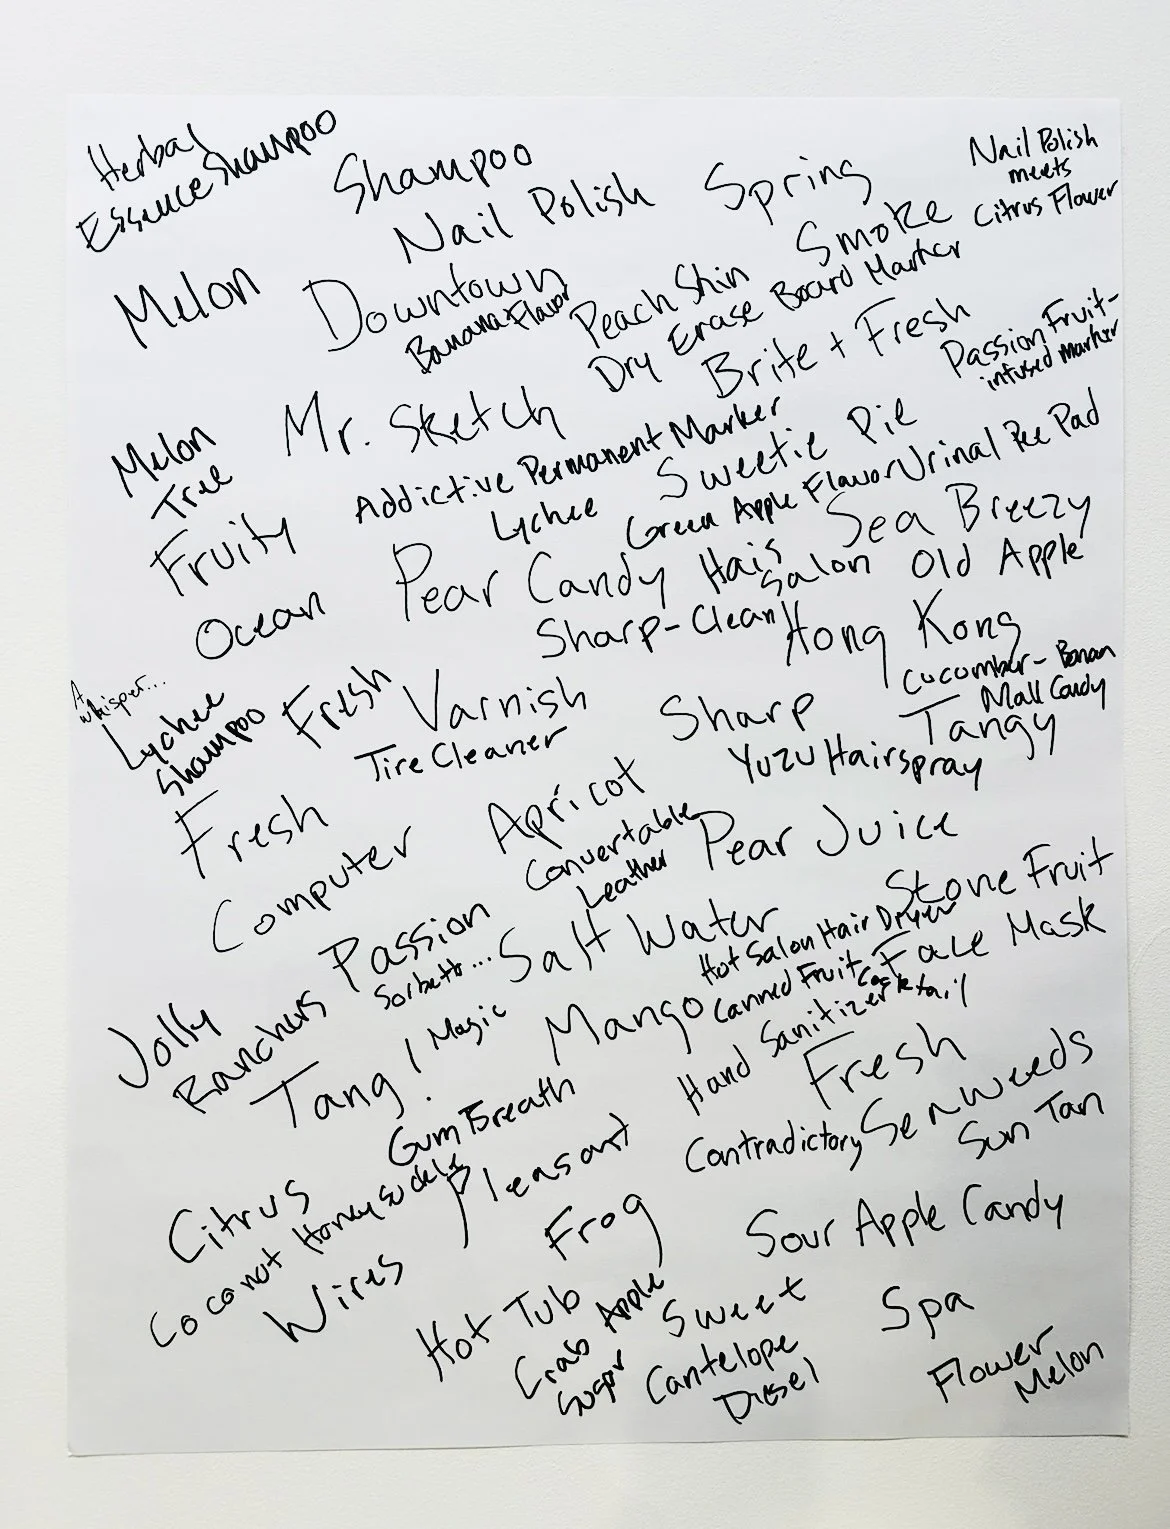 Herbal
Essence Shampoo
Shampoo
Nail Polish
Spring
Nail Polish
meets
Citrus Flower
Melon
Downtown
Banana Flavor
Peach Skin
Smoke
Dry Erase Board Marker
Brite + Fresh
Passion Fruit-
infused Marker
Melon
Tree
Mr. Sketch
Addictive Permanent Marker
Sweetie Pie
Lychee
Green Apple Flavor Urinal Pee Pad
Fruity
Pear Candy
Hair
Salon
Sea Breezy
Old Apple
Ocean
Sharp-Clean
Hong Kong
Cucumber-Banan
Mall Candy
A
whisper...
Lychee
Shampoo
Fresh
Varnish
Tire Cleaner
Sharp
Tangy
Yuzu Hairspray
Fresh
Apricot
Convertable
Leather
Pear Juice
Computer
Stone Fruit
Passion
Sorbetto...
Salt Water
Hot Salon Hair Dryer
Canned Fruit
Cocktail
Face Mask
Jolly
Ranchers
Magic
Mango
Hand Sanitizer
Tang!
Fresh
Gum Breath
Pleasant
Contradictory
Sea Weeds
Sun Tan
Citrus
Coconut Honeysuckle
Frog
Sour Apple Candy
Wires
Hot Tub
Crab Apple
Sugar
Sweet
Cantelope
Diesel
Spa
Flower
Melon